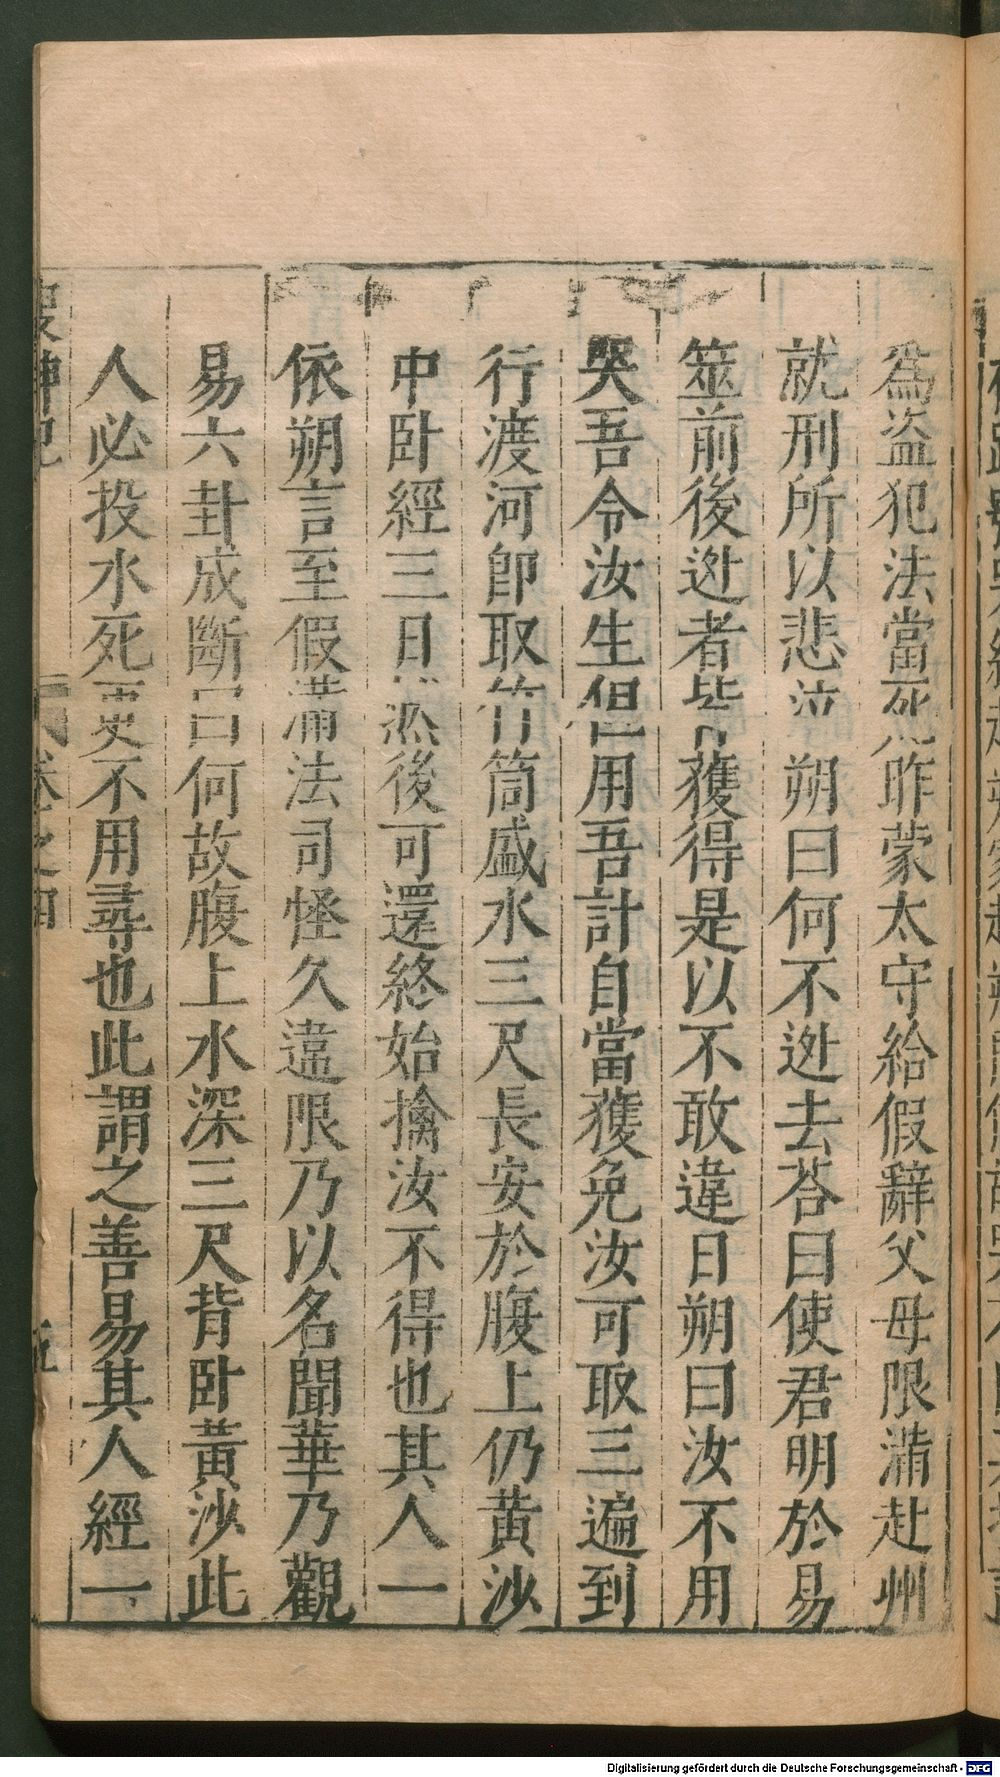 為盜犯法當死昨蒙太守給假辭父母限滿赴州
就刑所以悲泣朔曰何不逃去荅曰使君明於易
筮前後逃者皆獲得是以不敢違日朔曰汝不用
哭吾令汝生但用吾計自當獲免汝可取三遍到
行渡河卽取竹筒盛水三尺長安於腹上仍黄沙
中卧經三日然後可還終始擒汝不得也其人一
依朔言至假滿法司怪久違限乃以名聞華乃觀
易六卦成斷曰何故腹上水深三尺背卧黃沙此
人必投水死更不用尋也此謂之善易其人經一
搜神記 卷之四
Digitalisierung gefördert durch die Deutsche Forschungsgemeinschaft - DFG